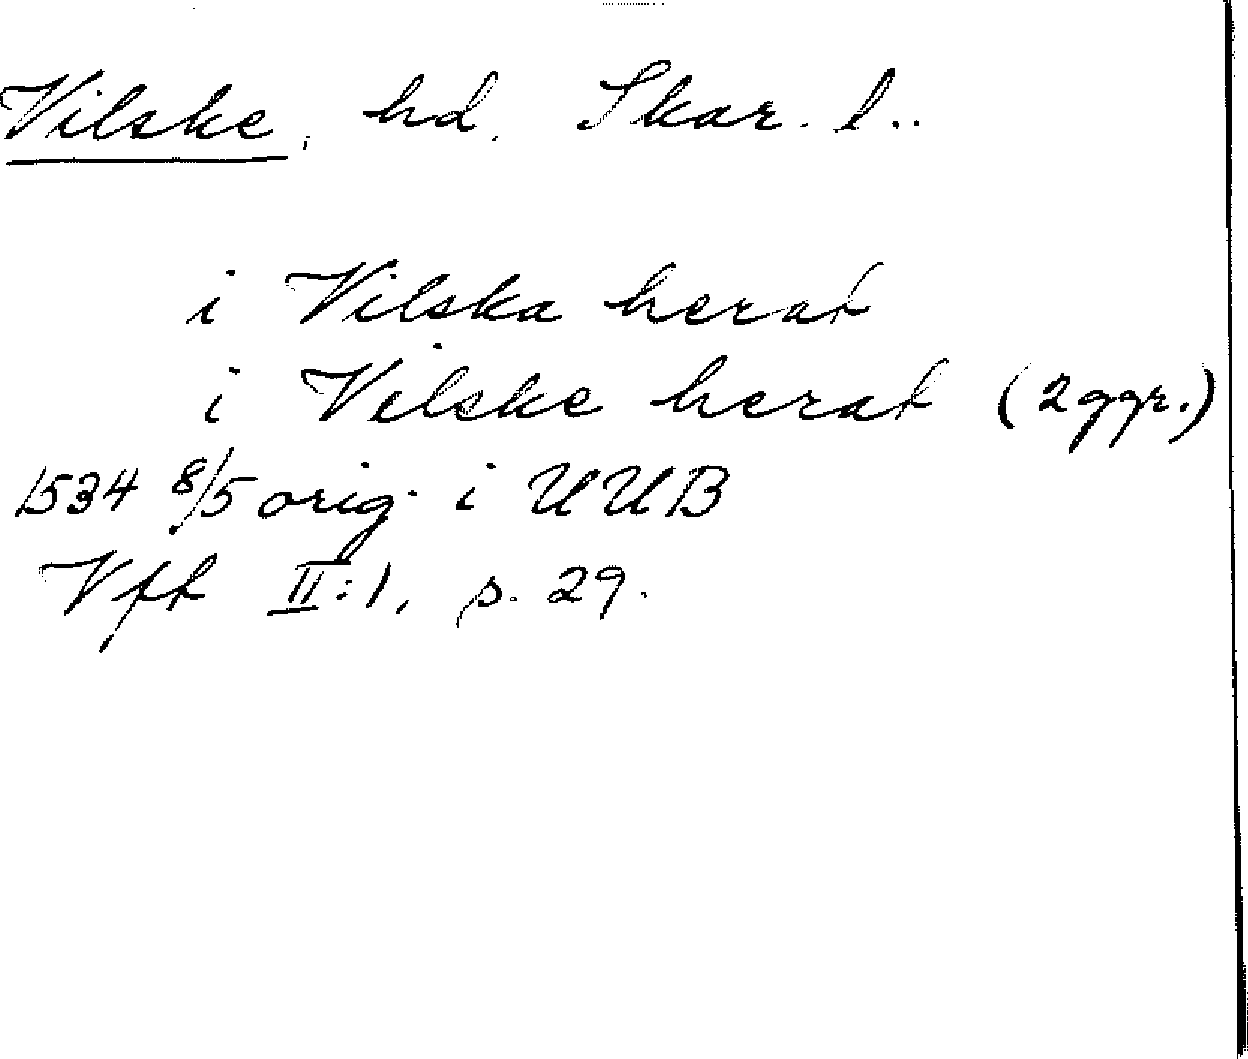 Vilske, hd. Skar. l..
i Vilska herat
i Vilske herat (2ggr.)
1534 8/5 orig. i UUB
Vft II:1, s. 29.